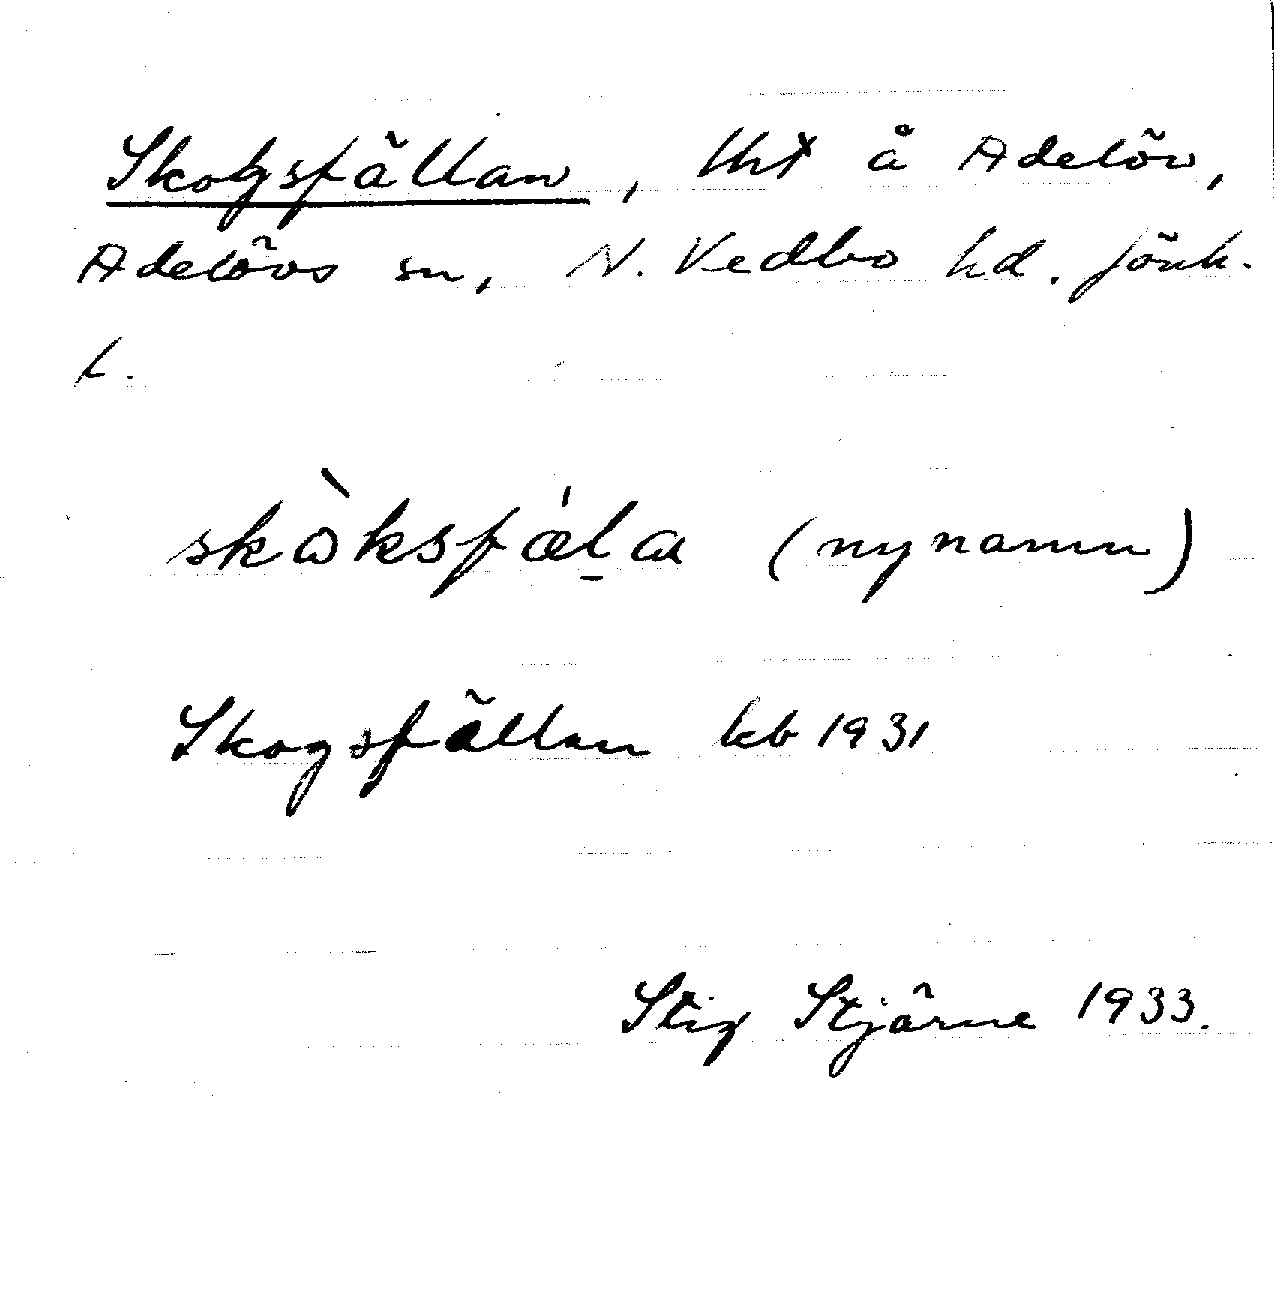 Skogsfällan, lht å Adelöv,
Adelövs sn, N. Vedbo hd. Jönk.
l.
skὼksfæ̍l̠a (nynamn)
Skogsfällan kb 1931
Stig Stjärne 1933.